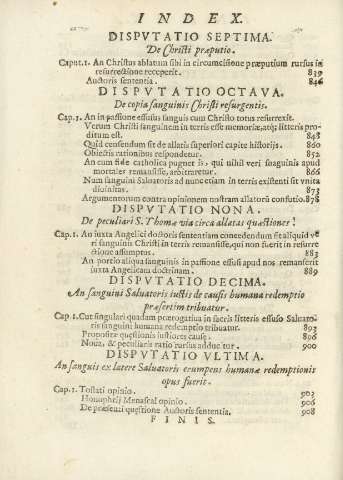 INDEX.
DISPVTATIO SEPTIMA.
De Christi præputio.
Caput.1. An Christus ablatum sibi in circumcisione præputium rursus in
resurrectione receperit. 839
Auctoris sententia. 846
DISPVTATIO OCTAVA.
De copia sanguinis Christi resurgentis.
Cap.1. An in passione effusus sanguis cum Christo totus resurrexit.
Verum Christi sanguinem in terris esse memoriæ, atq; litteris pro
ditum est. 848
Quid censendum sit de allaris superiori capite historijs. 860
Obiectis rationibus respondetur. 852
An cum fide catholica pugnet is, qui nihil veri sanguinis apud
mortales remansisse, arbitraretur. 866
Num sanguini Saluatoris ad nunc etiam in terris existenti sit vnita
diuinitas. 873
Argumentorum contra opinionem nostram allatorū confutatio. 878
DISPVTATIO NONA.
De peculiari S. Thomæ via circa allatas quæstiones!
Cap.1. An iuxta Angelici doctoris sententiam concedendum sit aliquid ve
ri sanguinis Christi in terris remansisse, qui non fuerit in resurre
ctione assumptus. 883
An portio aliqua sanguinis in passione effusi apud nos remanserit
iuxta Angelicam doctrinam. 889
DISPVTATIO DECIMA.
An sanguini Saluatoris iustis de causis humana redemptio
præsertim tribuatur.
Cap 1. Cur singulari quadam prærogatiua in sacris litteris effuso Saluato-
ris sanguini humana redemptio tribuatur. 893
Propositæ quęstionis iustiores causæ. 896
Noua, & peculiaris ratio rursus adducitur. 900
DISPVTATIO VLTIMA.
An sanguis ex latere Saluatoris erumpens humanæ redemptionis
opus fuerit.
Cap.1. Tostati opinio. 903
Honuphrij Menascal opinio. 906
De præsenti quęstione Auctoris sententia. 908
FINIS.